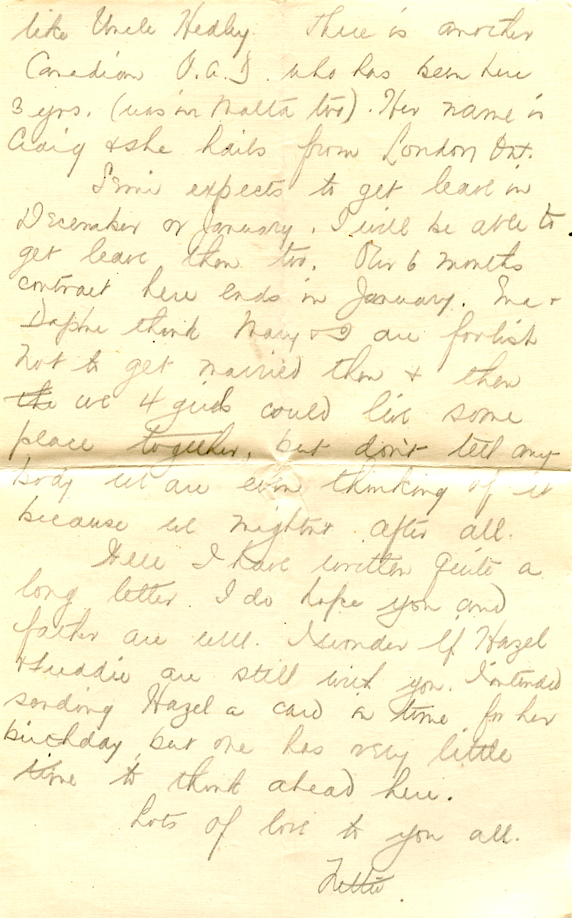 like Uncle Hedley. There is another
Canadian V.A.D. who has been here
3 yrs. (was in Malta too). Her name is
Craig & she hails from London Ont.
Ernie expects to get leave in
December or January. I will be able to
get leave then too. Our 6 months
contract here ends in January. Ina &
Daphne think Mary & I are foolish
not to get married then & then
the we 4 girls could live some
place together, but don't tell any-
body we are even thinking of it
because we mightnt after all.
Here I have written quite a
long letter. I do hope you and
father are well. I wonder if Hazel
& are still with you. Intended
sending Hazel a card in time for her
birthday, but one has very little
time to think ahead here.
Lots of love to you all.
Nettie.